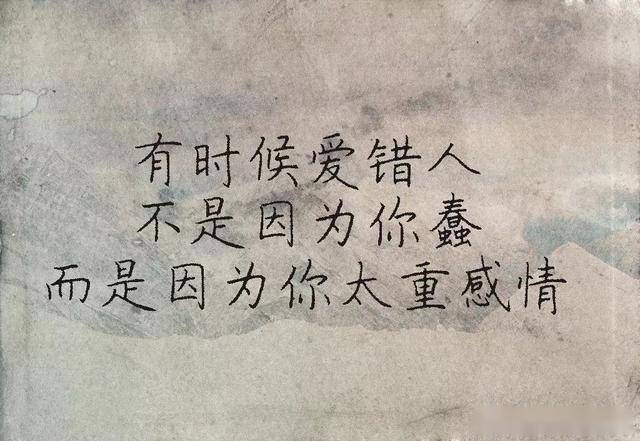 有时候爱错人
不是因为你蠢
而是因为你太重感情